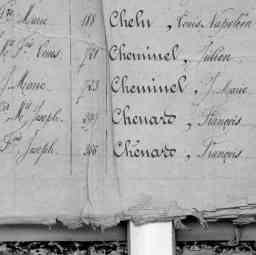 Marie 188 Chelu, Louis Napoléon
Mie Fois Louis 781 Cheminel, Julien
J. Marie 783 Cheminel, J. Marie
Mie Joseph 297 Chenard, François
Fois Joseph 296 Chénard, François